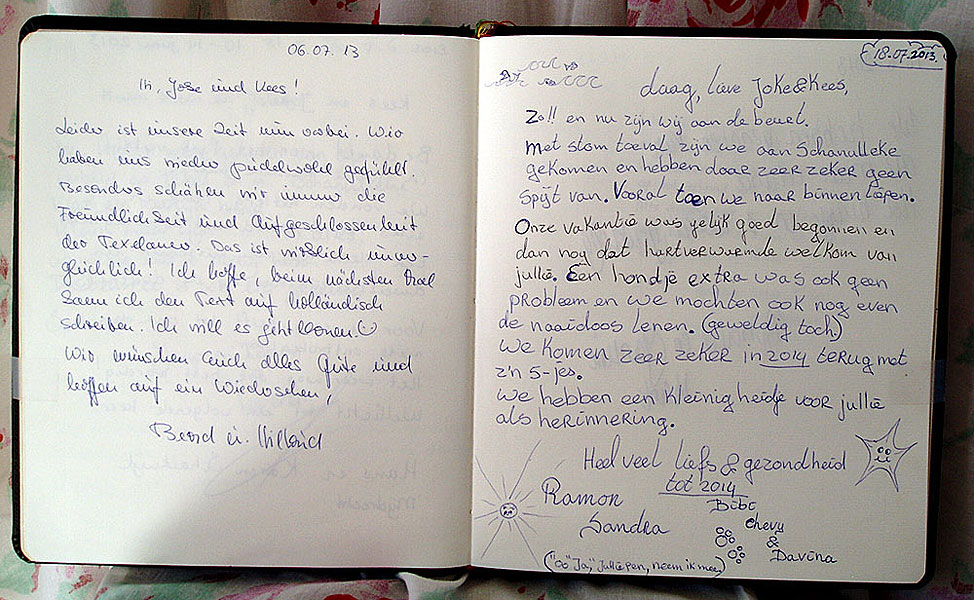 06.07.13
Hi, Jose und Kees!
Leider ist unsere Zeit nun vorbei. Wir
haben uns wieder pudelwohl gefühlt.
Besonders schätzen wir immer die
Freundlichkeit und Aufgeschlossenheit
der Texelaner. Das ist wirklich unver-
gleichlich! Ich hoffe, beim nächsten Mal
kann ich den Text auf holländisch
schreiben. Ich will es jetzt lernen.☺
Wir wünschen Euch alles Gute und
hoffen auf ein Wiedersehen,
Bernd u.
18.07.2013.
daag, lieve Joke & Kees,
Zo!! en nu zijn wij aan de beurt.
Met stom toeval zijn we aan Schanulleke
gekomen en hebben daar zeer zeker geen
spijt van. Vooral toen we naar binnen liepen.
Onze vakantie was gelijk goed begonnen en
dan nog dat hartverwarmde welkom van
jullie. Een hondje extra was ook geen
probleem en we mochten ook nog even
de naaidoos lenen. (geweldig toch)
We komen zeer zeker in 2014 terug met
z'n 5-jes.
We hebben een kleinigheidje voor jullie
als herinnering.
Heel veel liefs & gezondheid
tot 2014
Ramon
Sandra
Bibi
Chevy
&
Davina
("oo" Ja," jullie pen, neem ik mee)